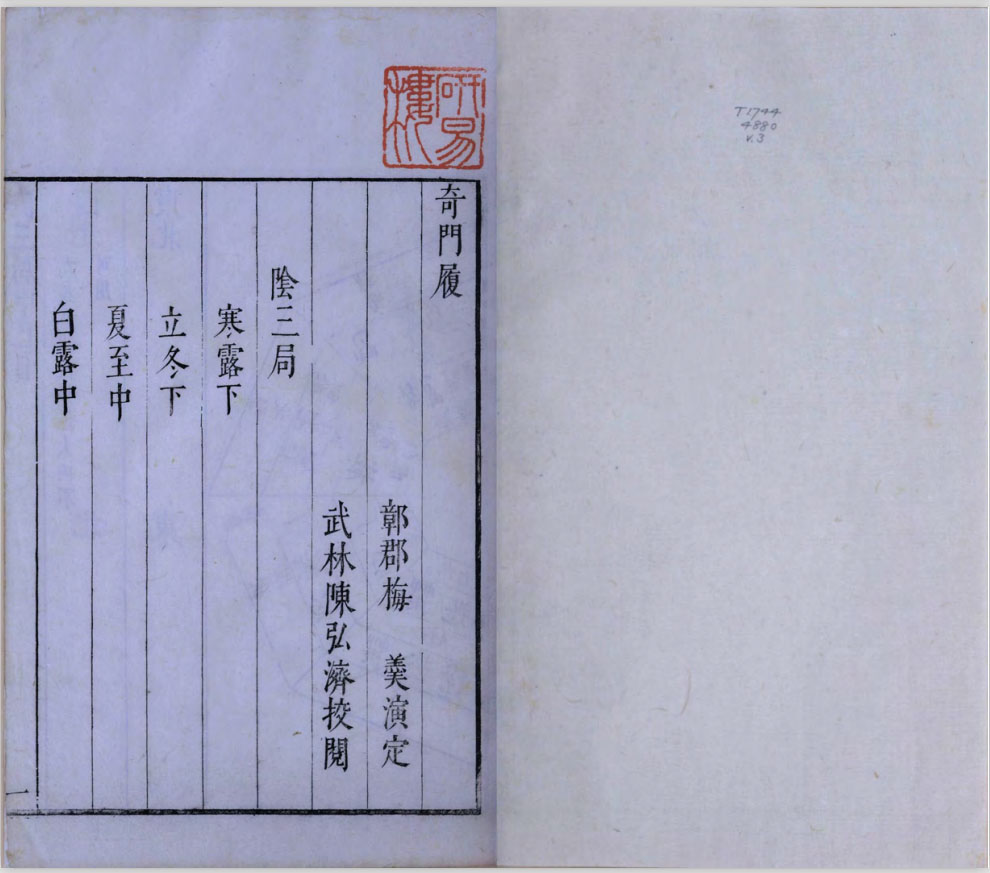 T1744
4880
v.3
研易樓
奇門履
鄣郡梅　羹演定
武林陳弘濟挍閱
陰三局
寒露下
立冬下
夏至中
白露中
一